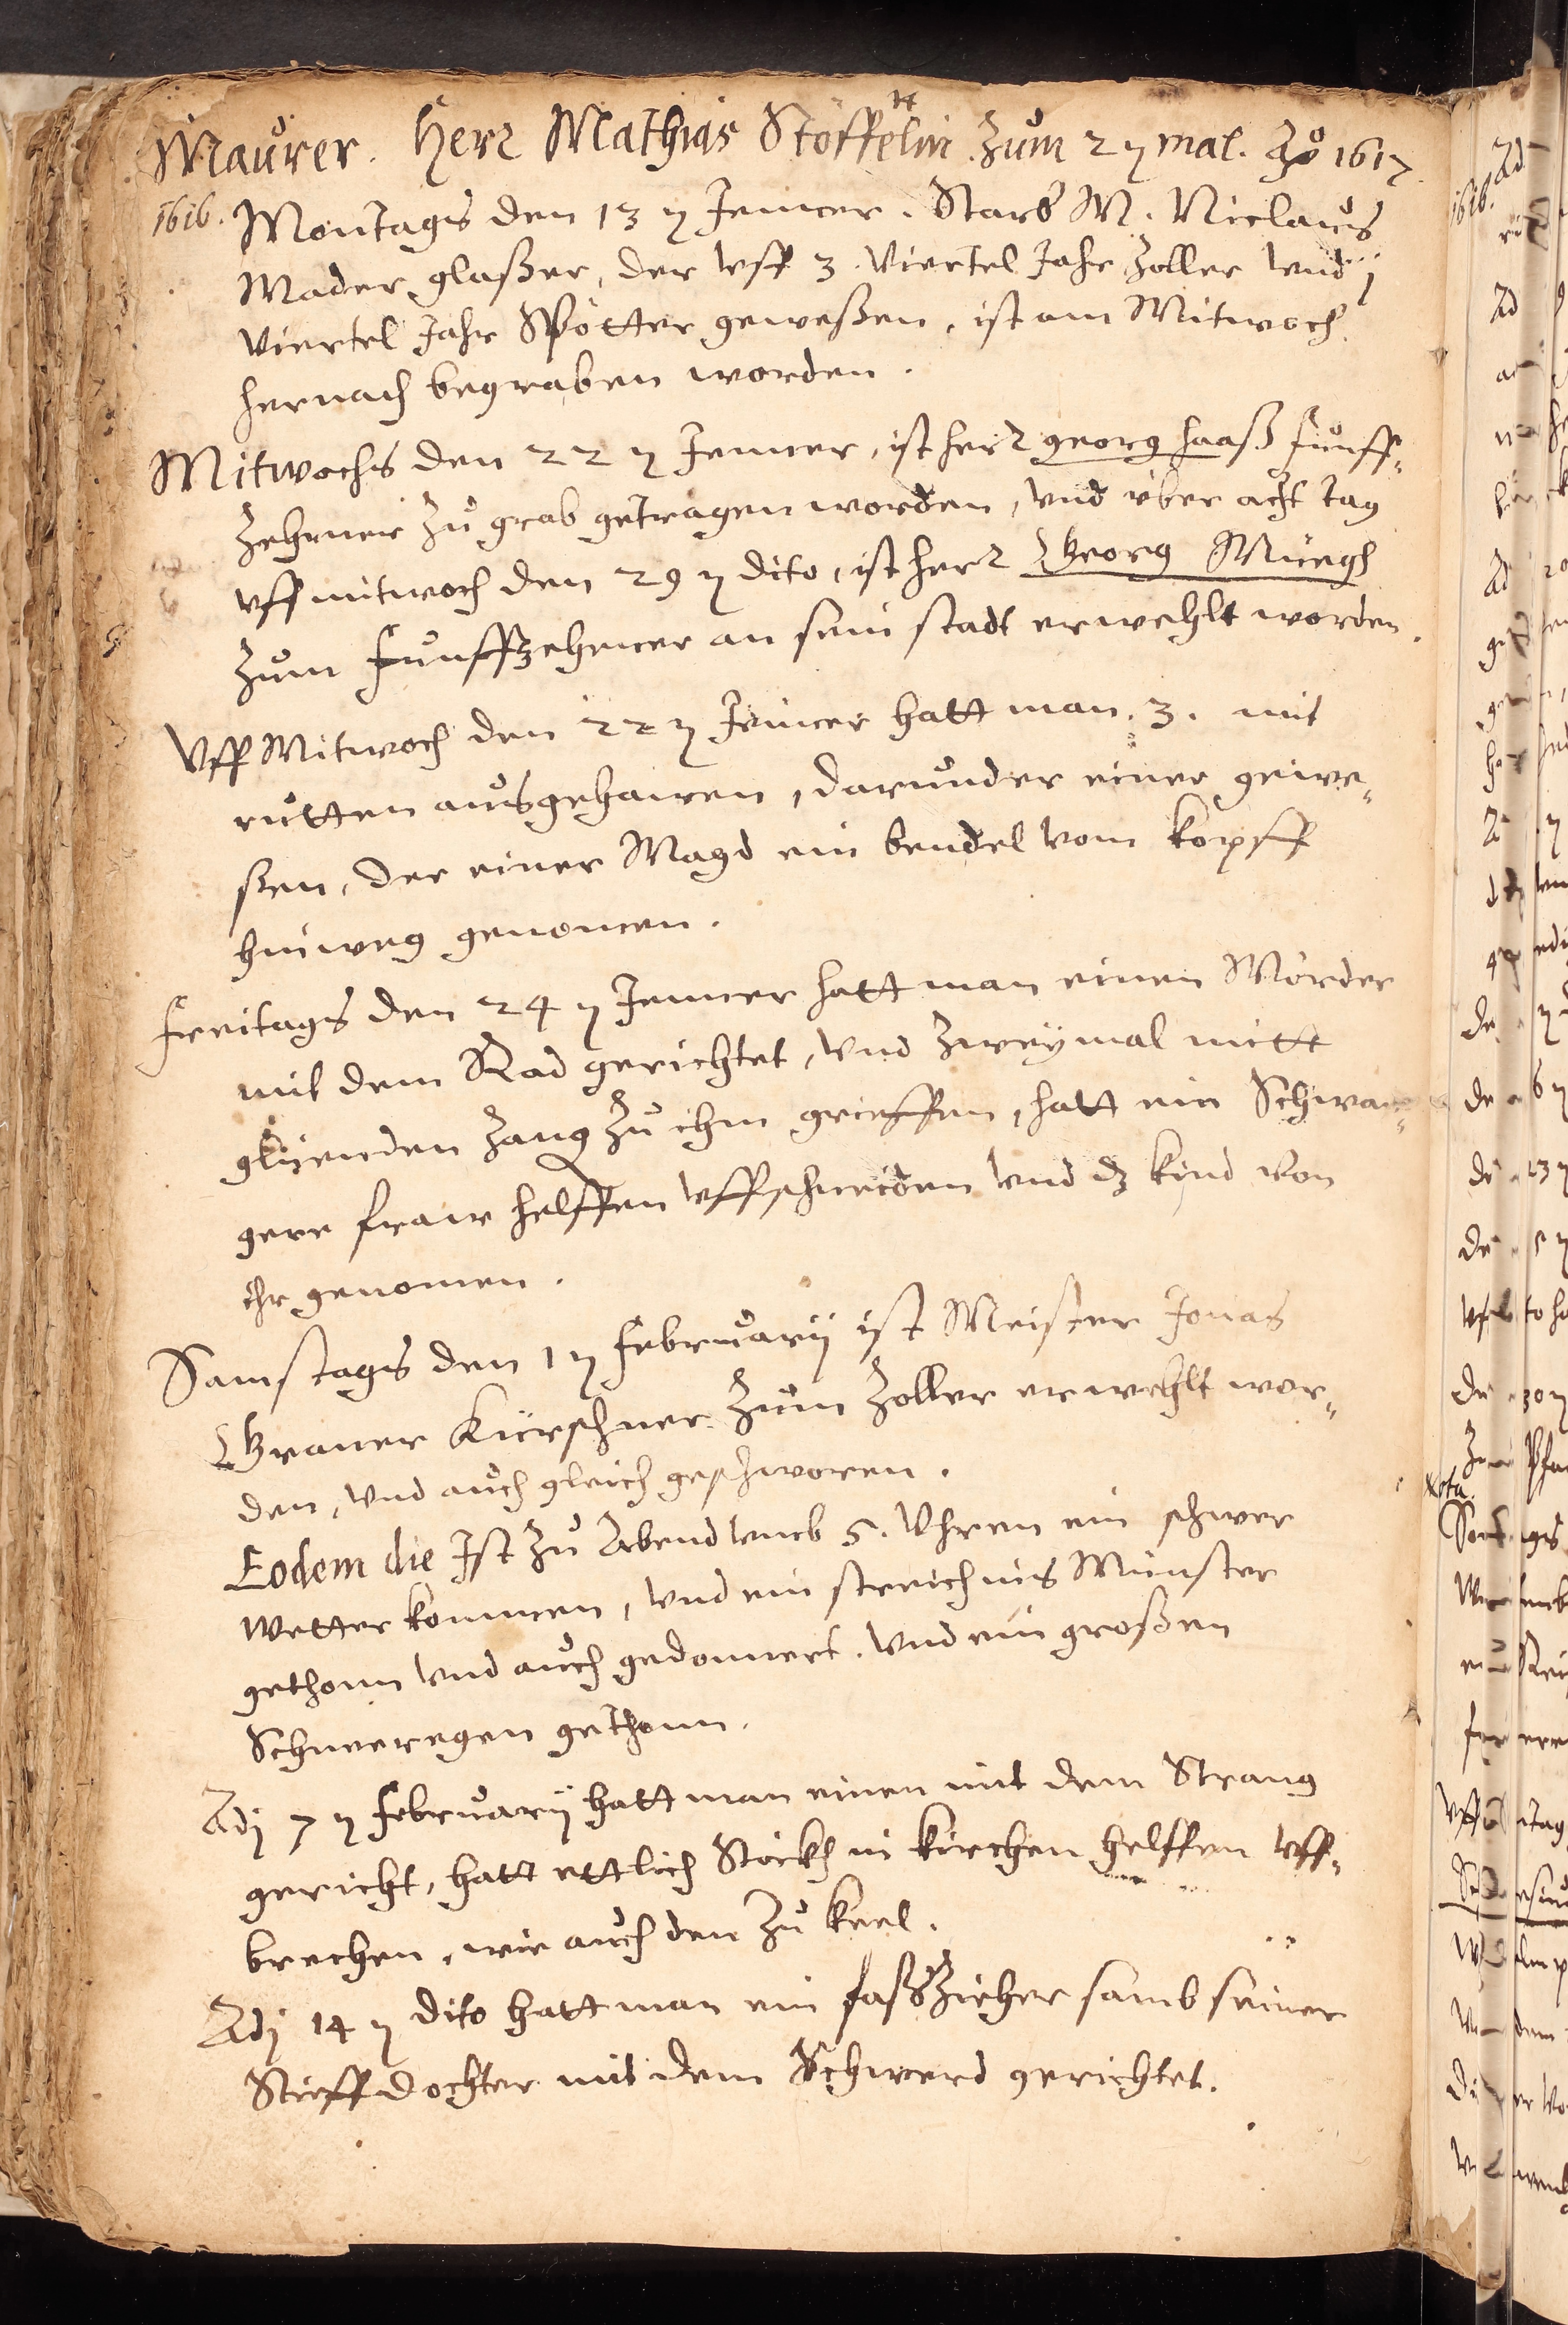 Maurer. Herr Mathias Stöffelin zum 2 ten mal. Ao 1617.
1616. Montags den 13 ten Jenner. Starb M. Niclaus
Mader glaßer, der vff 3. Viertel Jahr Zoller vnd j
Viertel Jahr Spötter geweßen, ist am Mitwoch
hernach begraben worden.
Mitwochs den 22 ten Jenner, ist herr georg haaß funff-
Zehner zu grab getragen worden, vnd über acht tag
vff mitwoch den 29 ten dito, ist herr Georg Müegh
zum Funffzehner an sein stadt erwehlt worden.
Vff Mitwoch den 22 ten Jenner hatt man. 3. mit
rutten ausgehawen, darunder einer gewe-
ßen, der einer Magd ein bendel vom kopff
hinweg genomen.
freitags den 24 ten Jenner hatt man einen Mörder
mit dem Rad gerichtet, vnd zweymal mitt
glüenden zang zu ihm grieffen, hatt ein Schwan-
gere fraw helffen vffschneiden vnd dz kind von
ihr genomen.
Samstags den 1 ten februarij ist Meister Jonas
Graner Kürschner zum Zoller erwehlt wor-
den, vnd auch gleich geschworen.
Eodem die Ist zu Abend vmb 5. Vhren ein schwer
Wetter kommen, vnd ein streich ins Münster
gethonn vnd auch gedonnert. vnd ein großen
Schneeregen gethonn.
Adj 7 ten februarij hatt man einen mit dem Strang
gericht, hatt ettlich Stöckh in kirchen helffen vff-
brechen, wie auch den zu keel.
Adj 14 ten dito hatt man ein faßzieher samb seiner
Stieffdochter mit dem Schwerd gerichtet.